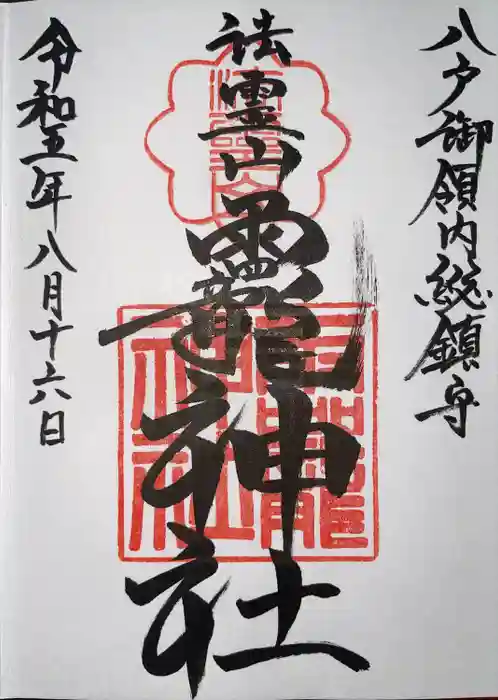 八戸御領内総鎮守
法霊山
龗神社
令和五年八月十六日
龗
神社